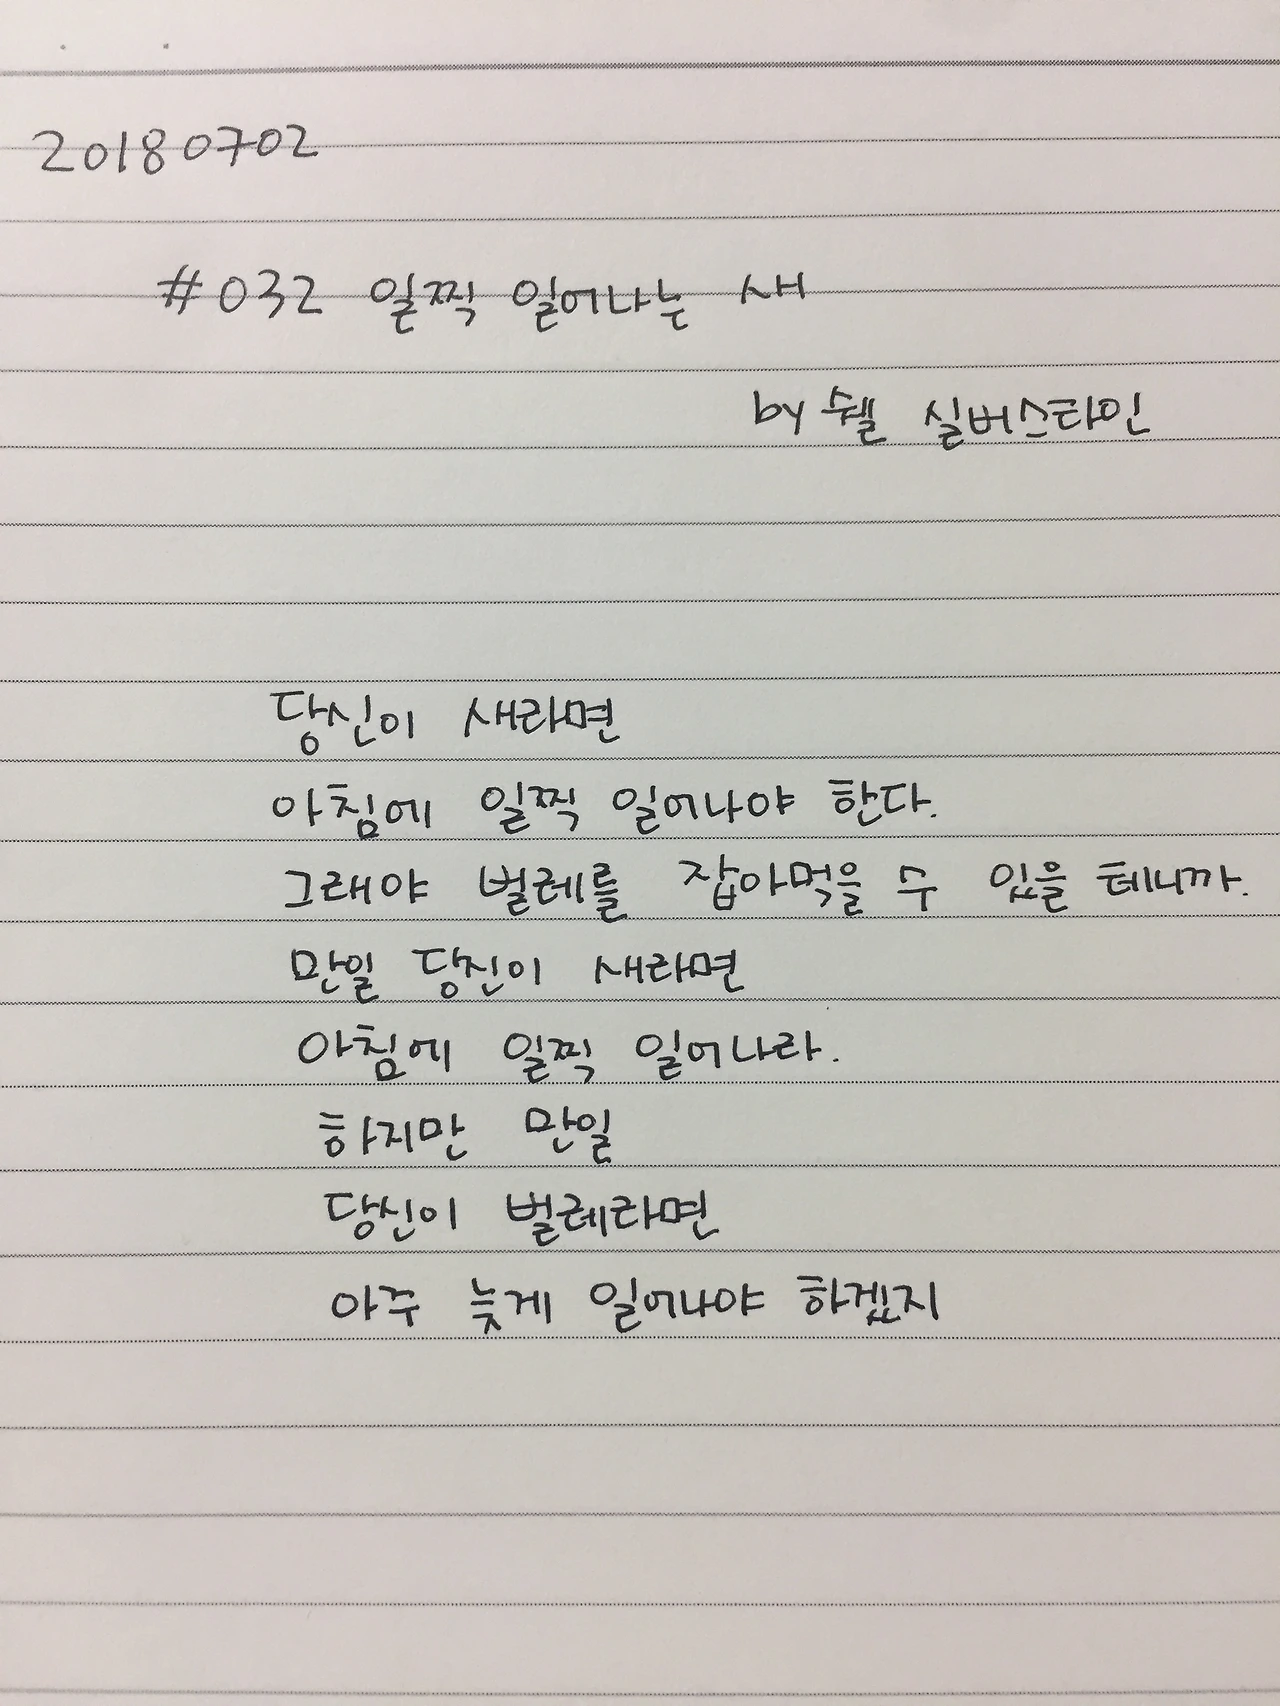 20180702
#032 일찍 일어나는 새
by 쉘 실버스타인
당신이 새라면
아침에 일찍 일어나야 한다.
그래야 벌레를 잡아먹을 수 있을 테니까.
만일 당신이 새라면
아침에 일찍 일어나라.
하지만 만일
당신이 벌레라면
아주 늦게 일어나야 하겠지